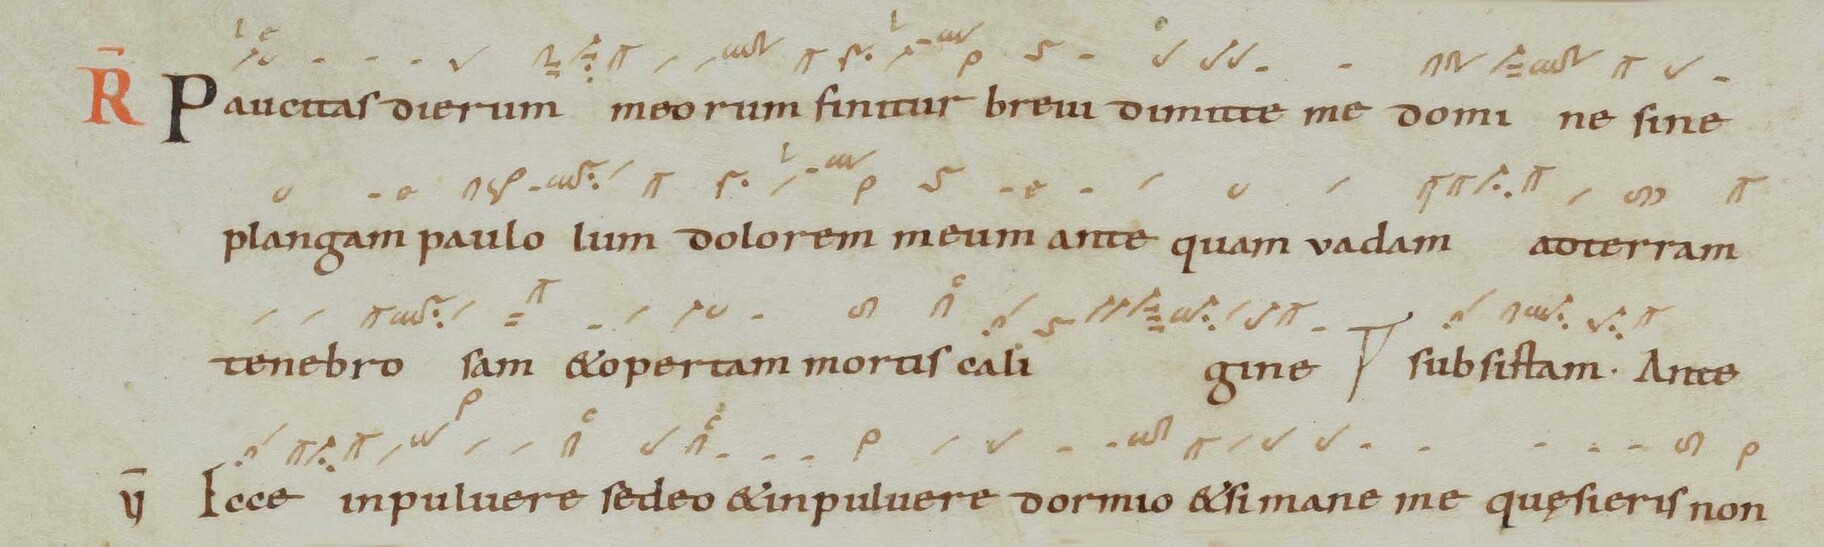 R̄ Paucitas dierum meorum finitur breui dimitte me domi ne sine
plangam paulo lum dolorem meum ante quam vadam ad terram
tenebro sam & opertam mortis cali gine subsistam. Ante
ȳ Ecce inpuluere sedeo & inpuluere dormio & si mane me quęsieris non